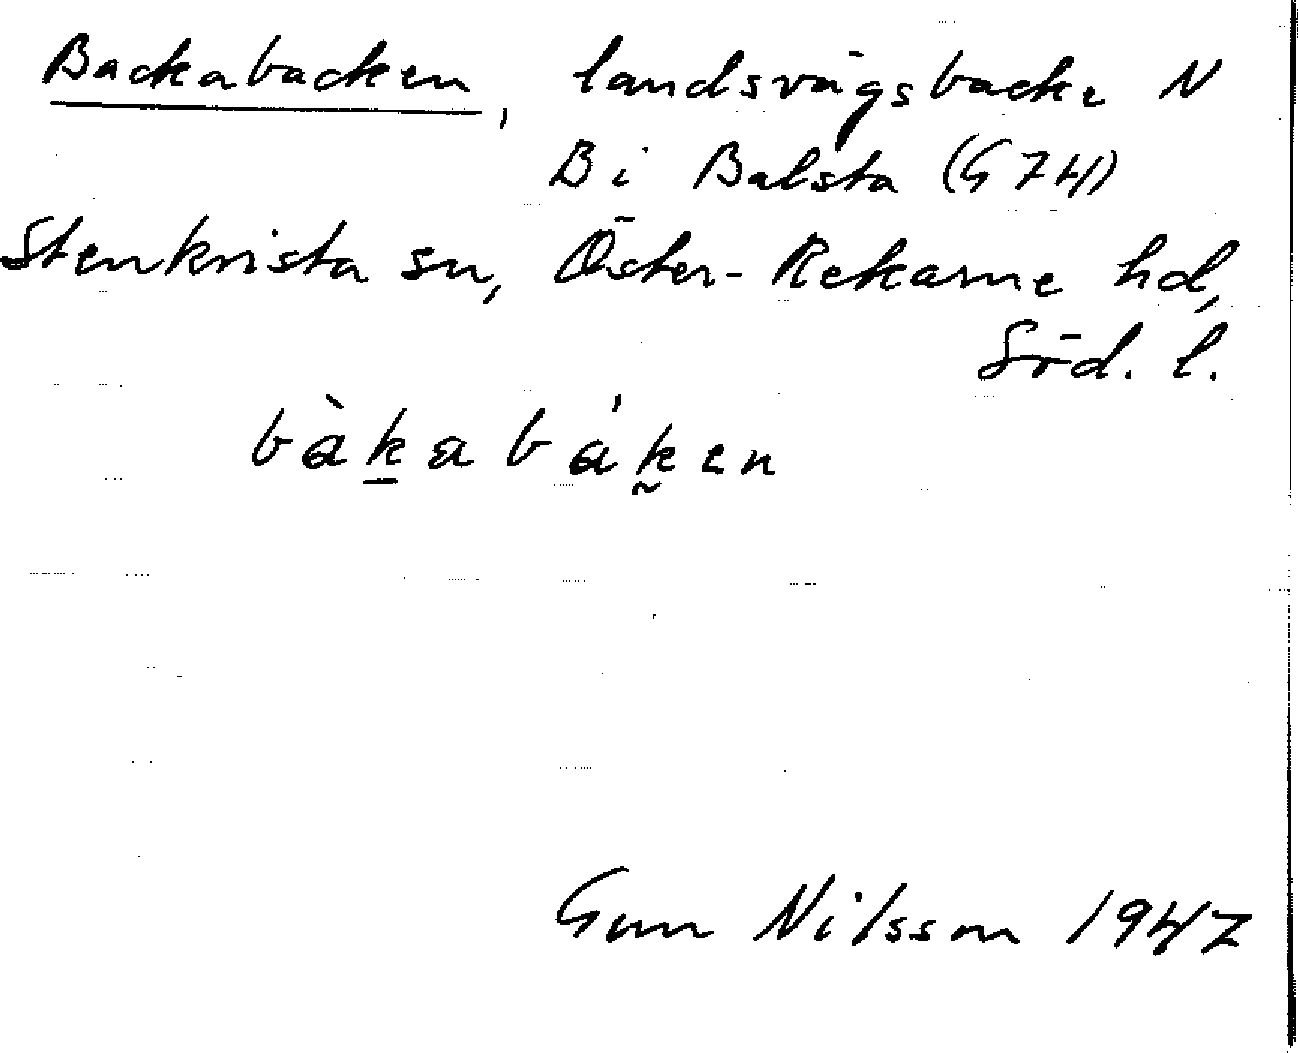 Backabacken, landsvägsbacke N
Bi Balsta (G74)
Stenkvista sn, Öster-Rekarne hd,
Söd. l.
bàk̲abák̰en
Gun Nilsson 1947